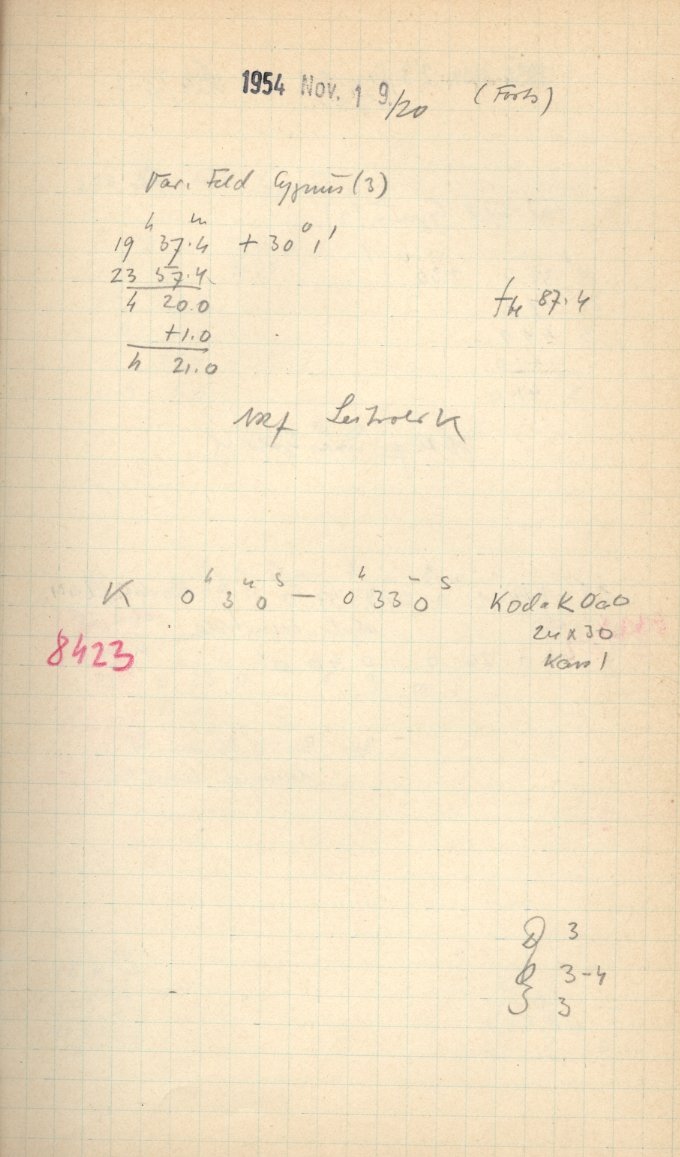 1954 Nov. 19/20 (Forts)
Var. Feld Cygnus (3)
19 h 37.4 m + 30° 1'
23 57.4
4 20.0
+1.0
4 21.0
87.4
K 0 h 3 m 0 s — 0 h 33 m 0 s Kodak OaO
24 x 30
Kass 1
8423
3
3-4
S 3